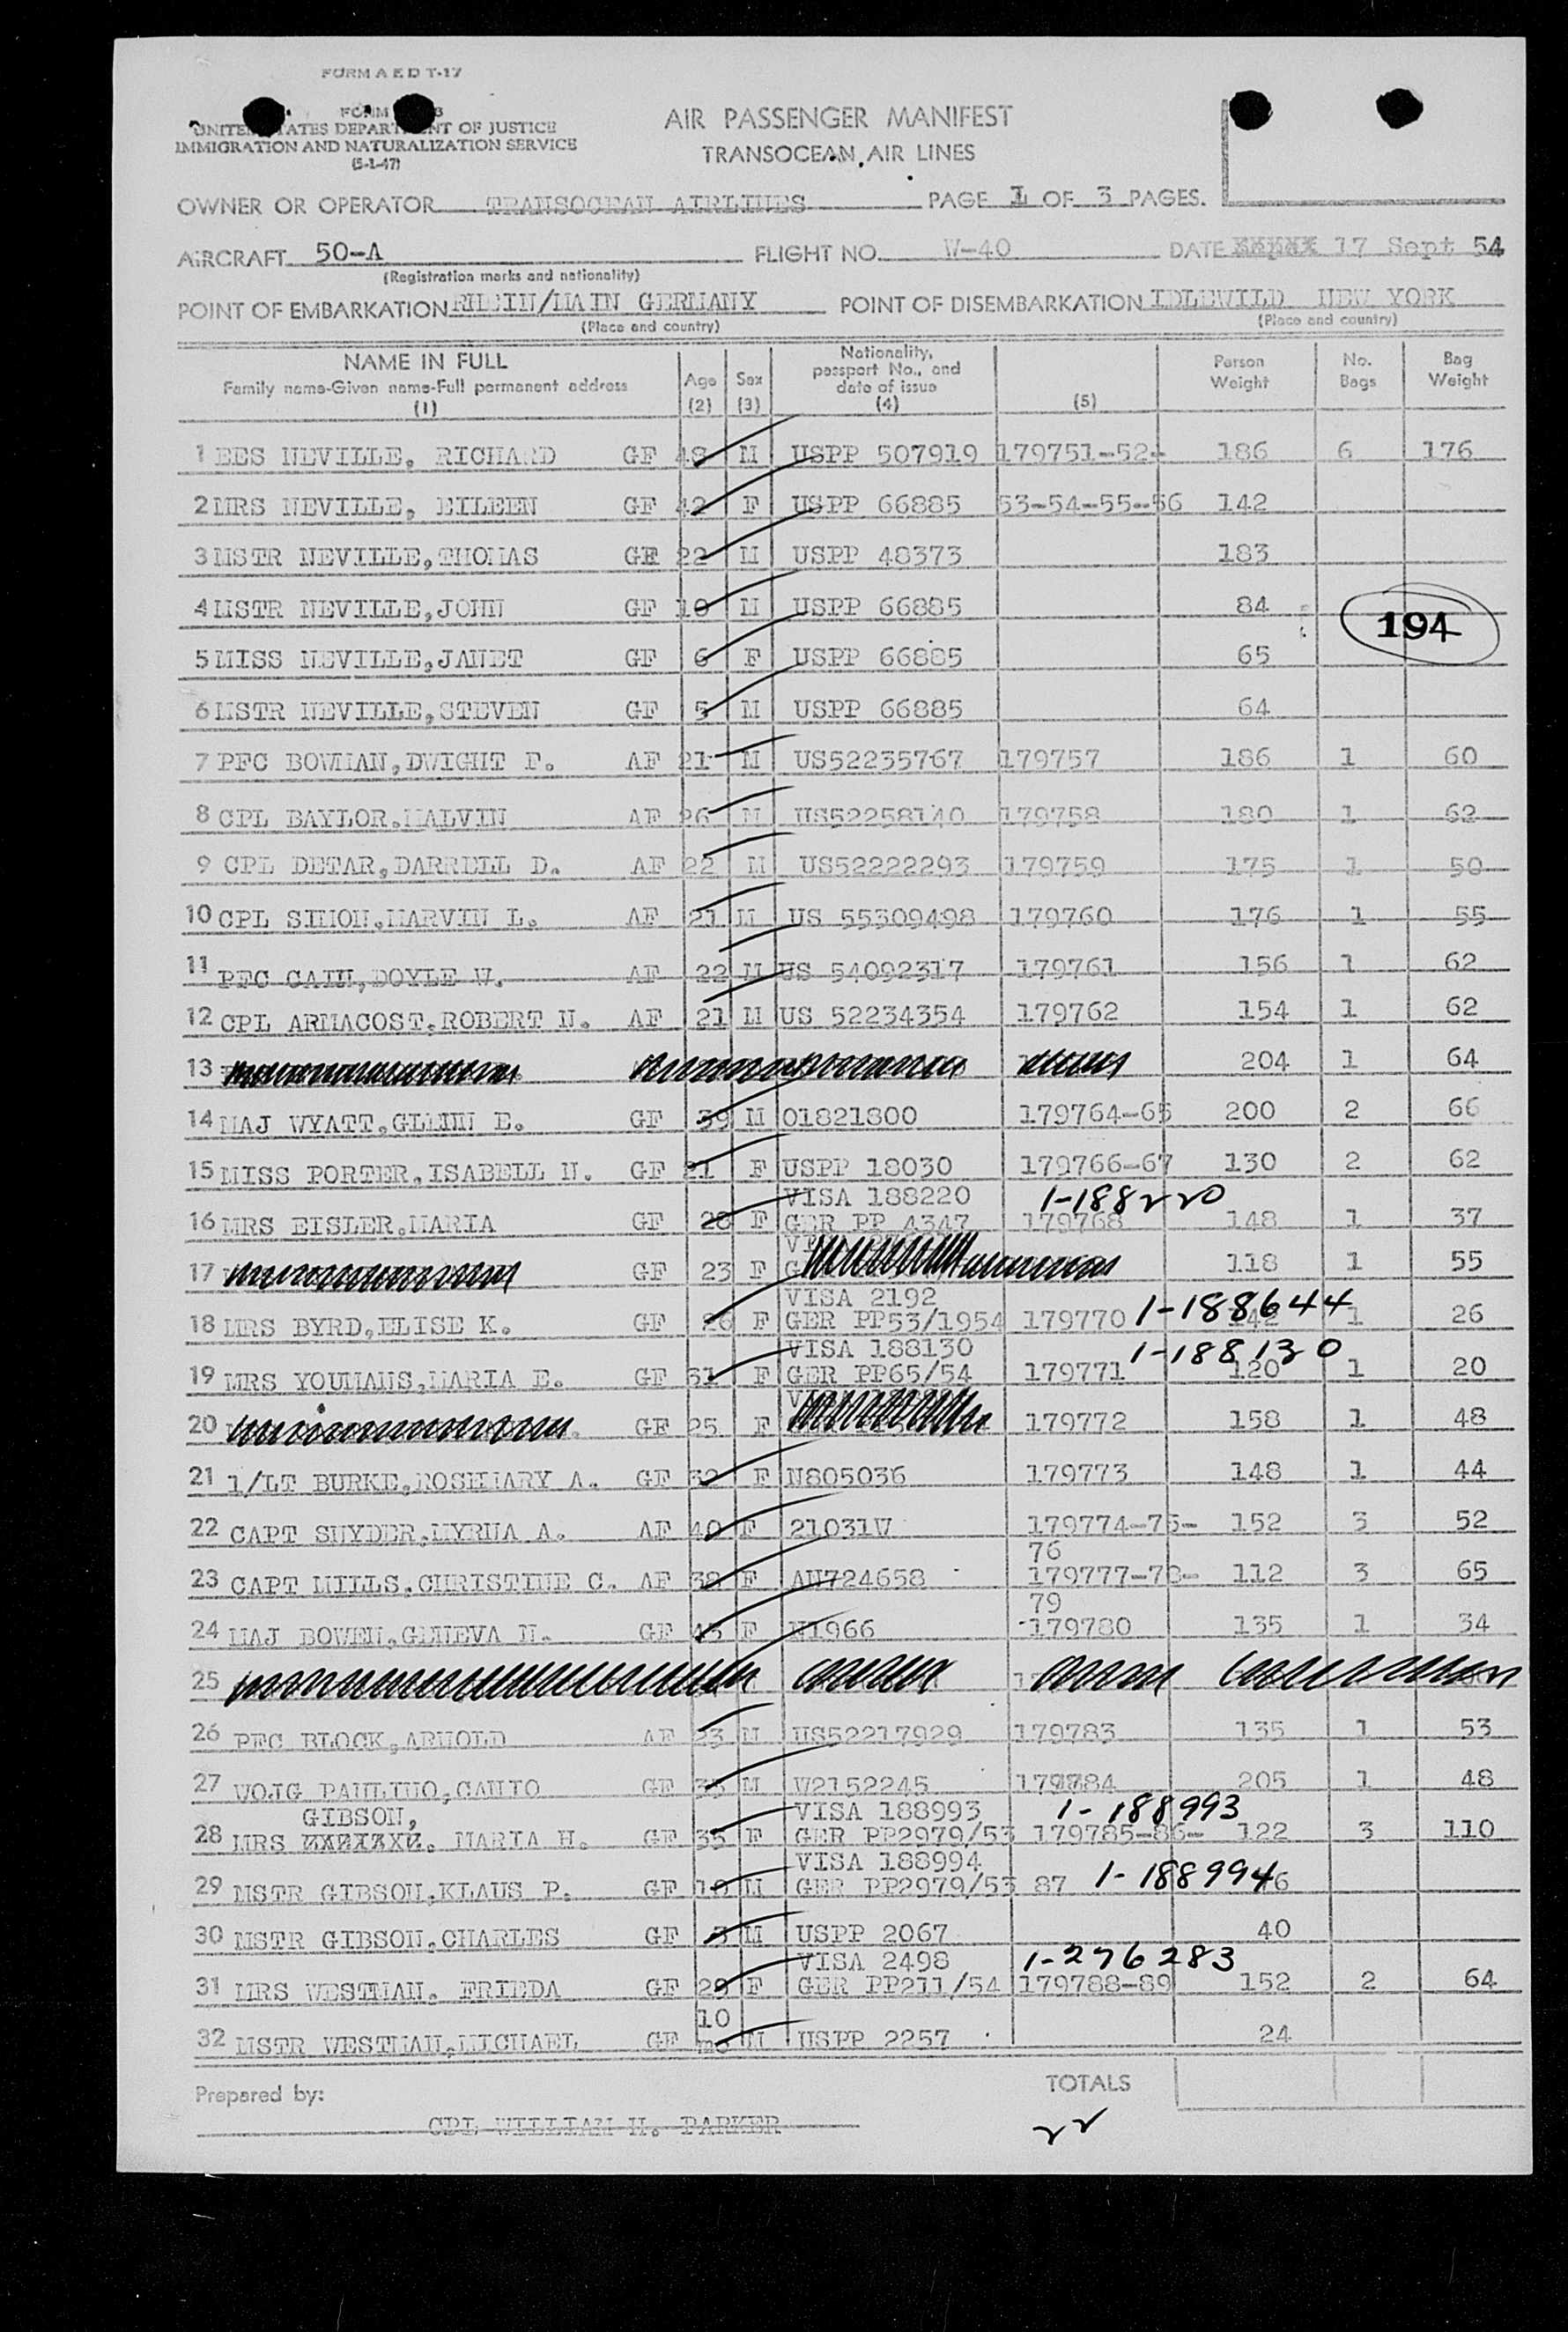 FORM A E D T-17
UNITED STATES DEPARTMENT OF JUSTICE
IMMIGRATION AND NATURALIZATION SERVICE
(5-1-47)
AIR PASSENGER MANIFEST
TRANSOCEAN AIR LINES
OWNER OR OPERATOR TRANSOCEAN AIRLINES PAGE 1 OF 3 PAGES.
AIRCRAFT 50-A FLIGHT NO. W-40 DATE 17 Sept 54
(Registration marks and nationality)
POINT OF EMBARKATION RHEIN/MAIN GERMANY POINT OF DISEMBARKATION IDLEWILD NEW YORK
(Place and country) (Place and country)
NAME IN FULL Family name-Given name-Full permanent address (1) Age (2) Sex (3) Nationality, passport No., and date of issue (4) (5) Person Weight No. Bags Bag Weight
1 EES NEVILLE, RICHARD GF 48 M USPP 507919 179751-52- 186 6 176
2 MRS NEVILLE, EILEEN GF 42 F USPP 66885 53-54-55-56 142
3 MSTR NEVILLE,THOMAS GF 22 M USPP 48373 183
4 MSTR NEVILLE,JOHN GF 10 M USPP 66885 84
194
5 MISS NEVILLE,JANET GF 6 F USPP 66885 65
6 MSTR NEVILLE,STEVEN GF 5 M USPP 66885 64
7 PFC BOWMAN,DWIGHT F. AF 21 M US52235767 179757 186 1 60
8 CPL BAYLOR,MALVIN AF 26 M US52258140 179758 180 1 62
9 CPL DETAR,DARRELL D. AF 22 M US52222293 179759 175 1 50
10 CPL SIMON,MARVIN L. AF 21 M US 55309498 179760 176 1 55
11 PFC CAIN,DOYLE W. AF 22 M US 54092317 179761 156 1 62
12 CPL ARMACOST,ROBERT N. AF 21 M US 52234354 179762 154 1 62
13 204 1 64
14 MAJ WYATT,GLENN E. GF 39 M 01821800 179764-65 200 2 66
15 MISS PORTER,ISABELL N. GF 21 F USPP 18030 179766-67 130 2 62
VISA 188220 1-188220
16 MRS EISLER,MARIA GF 28 F GER PP 4347 179768 148 1 37
17 GF 23 F 118 1 55
VISA 2192 1-188644
18 MRS BYRD,ELISE K. GF 26 F GER PP53/1954 179770 142 1 26
VISA 188130 1-188130
19 MRS YOUMANS,MARIA E. GF 31 F GER PP65/54 179771 120 1 20
20 GF 25 F 179772 158 1 48
21 1/LT BURKE,ROSEMARY A. GF 32 F N805036 179773 148 1 44
22 CAPT SNYDER,MYRNA A. AF 40 F 21031W 179774-75- 152 3 52
76
23 CAPT MILLS,CHRISTINE C. AF 38 F AN724658 179777-78- 112 3 65
79
24 MAJ BOWEN,GENEVA N. GF 45 F N1966 179780 135 1 34
25
26 PFC BLOCK,ARNOLD AF 23 M US52217929 179783 135 1 53
27 WOJG PAULINO,CANTO GF 35 M W2152245 179784 205 1 48
GIBSON, VISA 188993 1-188993
28 MRS MARIA H. GF 35 F GER PP2979/53 179785-86- 122 3 110
VISA 188994 1-188994
29 MSTR GIBSON,KLAUS P. GF 10 M GER PP2979/53 87
30 MSTR GIBSON,CHARLES GF 3 M USPP 2067 40
VISA 2498 1-276283
31 MRS WESTMAN, FRIEDA GF 29 F GER PP211/54 179788-89 152 2 64
10
32 MSTR WESTMAN,MICHAEL GF mo M USPP 2257 24
Prepared by: TOTALS
CPL WILLIAM H. PARKER 22